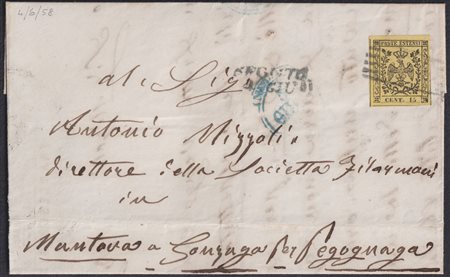 4/6/58
POSTE ESTENSI
CENT. 15
REGGIO
4 GIU
al. Sig
Antonio Mizzoli.
direttore della Societta Filarmoni
in
Mantova a Gonzaga per Pegognaga